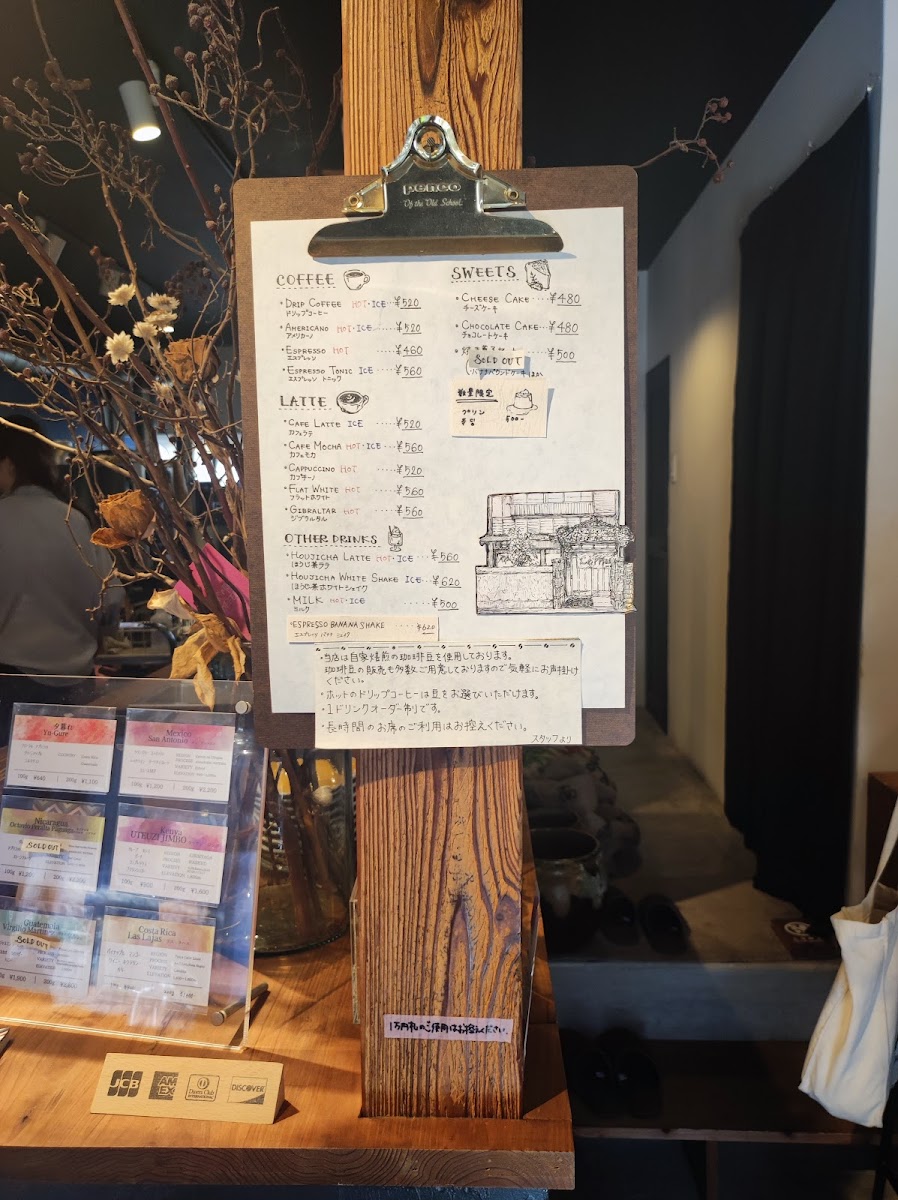 penco
Of the Old School.
COFFEE
・DRIP COFFEE HOT・ICE ・・¥520
ドリップコーヒー
・AMERICANO HOT・ICE ・・・・¥520
アメリカーノ
・ESPRESSO HOT ・・・・¥460
エスプレッソ
・ESPRESSO TONIC ICE ・・・¥560
エスプレッソ トニック
LATTE
・CAFE LATTE ICE ・・・・・¥520
カフェラテ
・CAFE MOCHA HOT・ICE ・・・¥560
カフェモカ
・CAPPUCCINO HOT ・・・・・¥520
カプチーノ
・FLAT WHITE HOT ・・・・・¥560
フラットホワイト
・GIBRALTAR HOT ・・・・¥560
ジブラルタル
OTHER DRINKS
・HOUJICHA LATTE HOT・ICE ・・・¥560
ほうじ茶ラテ
・HOUJICHA WHITE SHAKE ICE・・・¥620
ほうじ茶ホワイトシェイク
・MILK HOT・ICE ・・・・・¥500
ミルク
・ESPRESSO BANANA SHAKE ・・・・¥620
エスプレッソ バナナ シェイク
SWEETS
・CHEESE CAKE ・・・・¥480
チーズケーキ
・CHOCOLATE CAKE・・・¥480
チョコレートケーキ
¥500
SOLD OUT
パウンドケーキ ほか
数量限定
プリン
¥500-
・当店は自家焙煎の珈琲豆を使用しております。
珈琲豆の販売も多数ご用意しておりますので気軽にお声掛け
ください。
・ホットのドリップコーヒーは豆をお選びいただけます。
・1ドリンクオーダー制です。
・長時間のお席のご利用はお控えください。
スタッフより
夕暮れ
Yu-Gure
Mexico
San Antonio
100g ¥1,200 200g ¥2,200
Nicaragua
SOLD OUT
Kenya
UTEUZI JIMBO
Guatemala
SOLD OUT
Costa Rica
Las Lajas
1万円札のご使用はお控えください。
JCB
AM
EX
Diners Club
INTERNATIONAL
DISCOVER